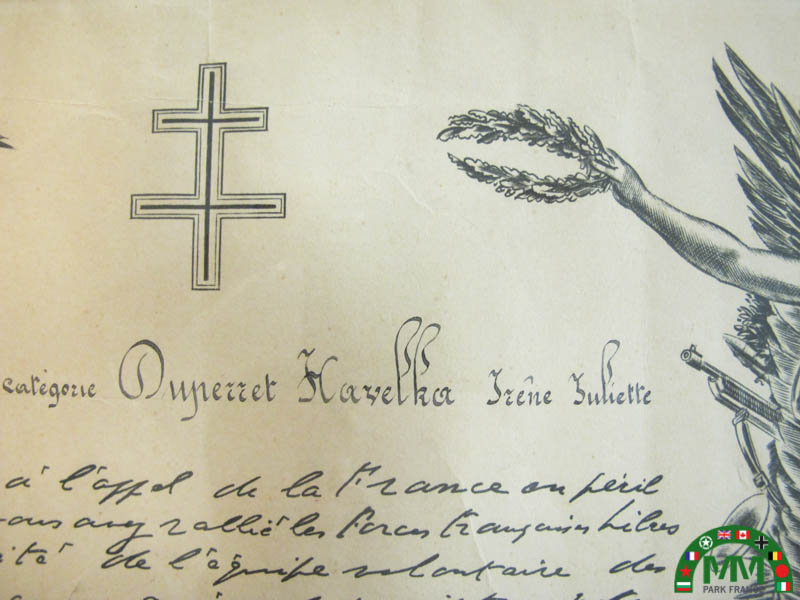 catégorie Duperret Havelka Irène Juliette
à l'appel de la France en péril
vous avez rallié les Forces Françaises Libres
de l'équipe volontaire des
MM
PARK FRANCE